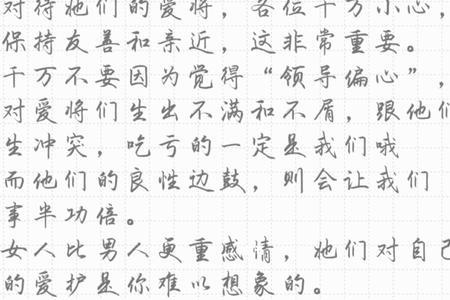 对待她们的爱将，各位千万小心，
保持友善和亲近，这非常重要。
千万不要因为觉得“领导偏心”，
对爱将们生出不满和不屑，跟他们
生冲突，吃亏的一定是我们哦
而他们的良性边鼓，则会让我们
事半功倍。
女人比男人更重感情，她们对自己
的爱护是你难以想象的。